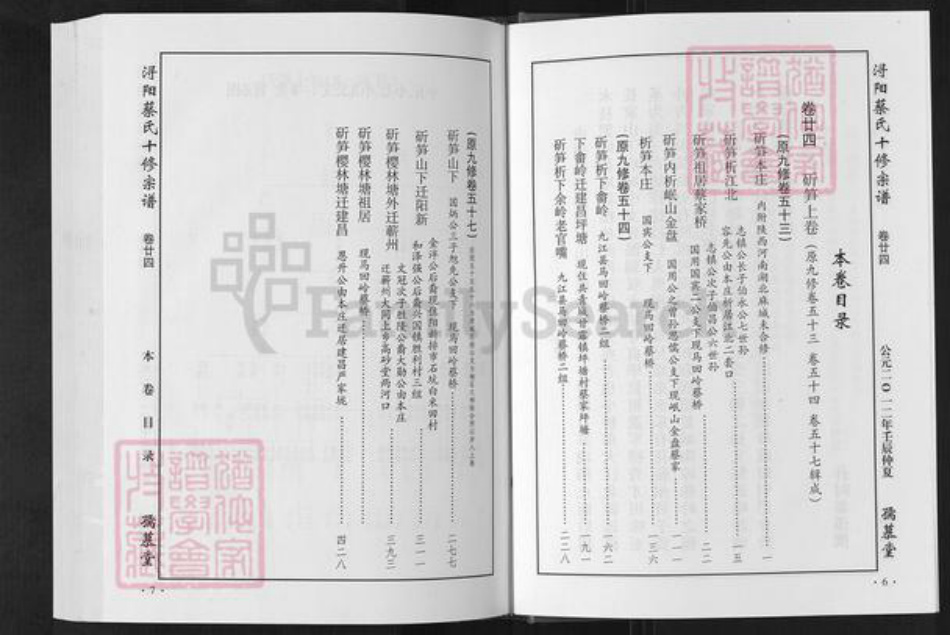 浔阳蔡氏十修宗谱
卷廿四
公元二〇一二年壬辰仲夏
孺慕堂
·6·
本卷目录
卷廿四 斫笋上卷（原九修卷五十三 卷五十四 卷五十七辑成）
（原九修卷五十三）
斫笋本庄 内附陕西河南湖北麻城未合修 一
斫笋析江北 志镇公长子伯永公七世孙
容先公由本庄析居江北二套口 一五
斫笋祖居蔡家桥 志镇公次子伯昌公六世孙
国用国宾二公支下现马回岭蔡桥 二二
斫笋内析岷山金盘 国用公之曾孙思儒公支下现岷山金盘蔡家 一一一
斫笋本庄 国宾公支下 现马回岭蔡桥 一三六
（原九修卷五十四）
斫笋析下畲岭 九江县马回岭蔡桥二组 一六二
下畲岭迁建昌坪塘 现住共青城甘露镇坪塘村蔡家坪塘 一九一
斫笋析下余岭老官嘴 九江县马回岭蔡桥二组 二二八
（原九修卷五十七）
斫笋山下 国炳公三子旭先公支下 现马回岭蔡桥 二七七
斫笋山下迁阳新 金洋公后裔现住阳新排市石坑白米田村
和泽强公后裔兴国镇胜利村三组 三一一
斫笋樱林塘外迁蕲州 文冠次子胜陵公裔大勋公由本庄
迁蕲州大同上乡高砂堂两河口 三九三
斫笋樱林塘祖居 现马回岭蔡桥
斫笋樱林塘迁建昌 恩升公由本庄迁居建昌严家垅 四二八
浔阳蔡氏十修宗谱
卷廿四
本卷目录
孺慕堂
·7·
FamilySearch